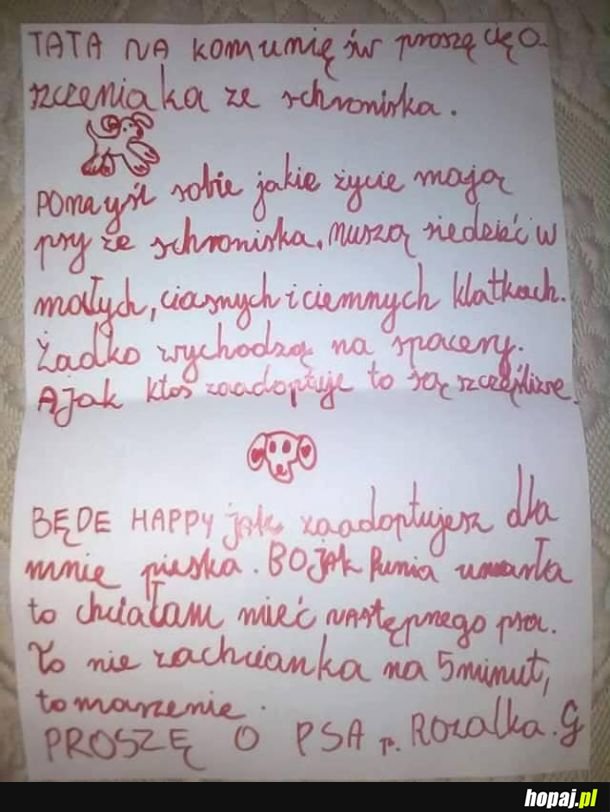 TATA NA komunię św proszę cię o
szczeniaka ze schroniska.
Pomayśl sobie jakie życie mają
psy ze schroniska. Muszą siedzieć w
małych, ciasnych i ciemnych klatkach.
Żadko wychodzą na spacery.
A jak ktoś zaadoptuje to są szczęśliwe.
BĘDE HAPPY jak zaadoptujesz dla
mnie pieska. BO JAK Punia umarła
to chciałam mieć następnego psa.
To nie zachcianka na 5 minut,
to marzenie.
PROSZĘ O PSA p. Rozalka. G
hopaj.pl